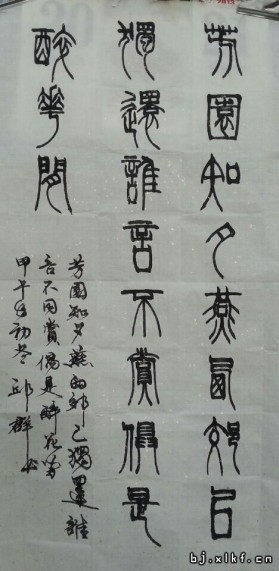 芳園知夕燕西郊已
獨還誰言不賞俱是
醉華間
芳園知夕燕西郊已獨還誰
言不同賞俱是醉花間
甲午年初冬 邱群书
bj.xlkf.cn